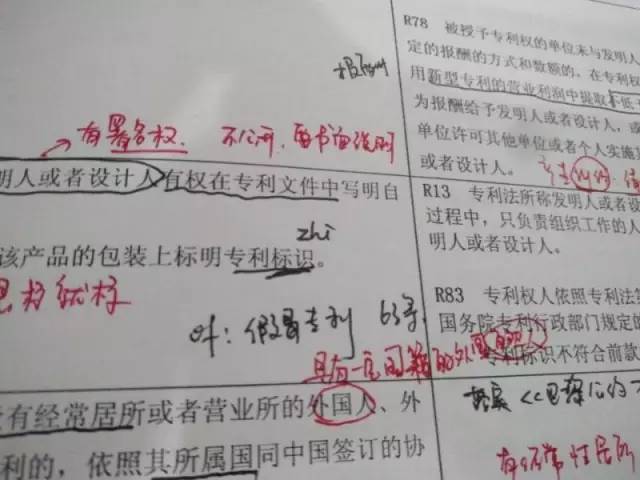 有署名权
不公开,要书面说明
明人或者设计人有权在专利文件中写明自
zhi
该产品的包装上标明专利标识。
vf: 假冒专利 63条
具有一定国籍的外国人
有经常居所或者营业所的外国人、外
利的,依照其所属国同中国签订的协
R78 被授予专利权的单位未与发明人
定的报酬的方式和数额的,在专利权
用新型专利的营业利润中提取不低
为报酬给予发明人或者设计人,或
单位许可其他单位或者个人实施
或者设计人。
R13 专利法所称发明人或者设
过程中,只负责组织工作的人
明人或者设计人。
R83 专利权人依照专利法
国务院专利行政部门规定的
专利标识不符合前款
有经常性居所